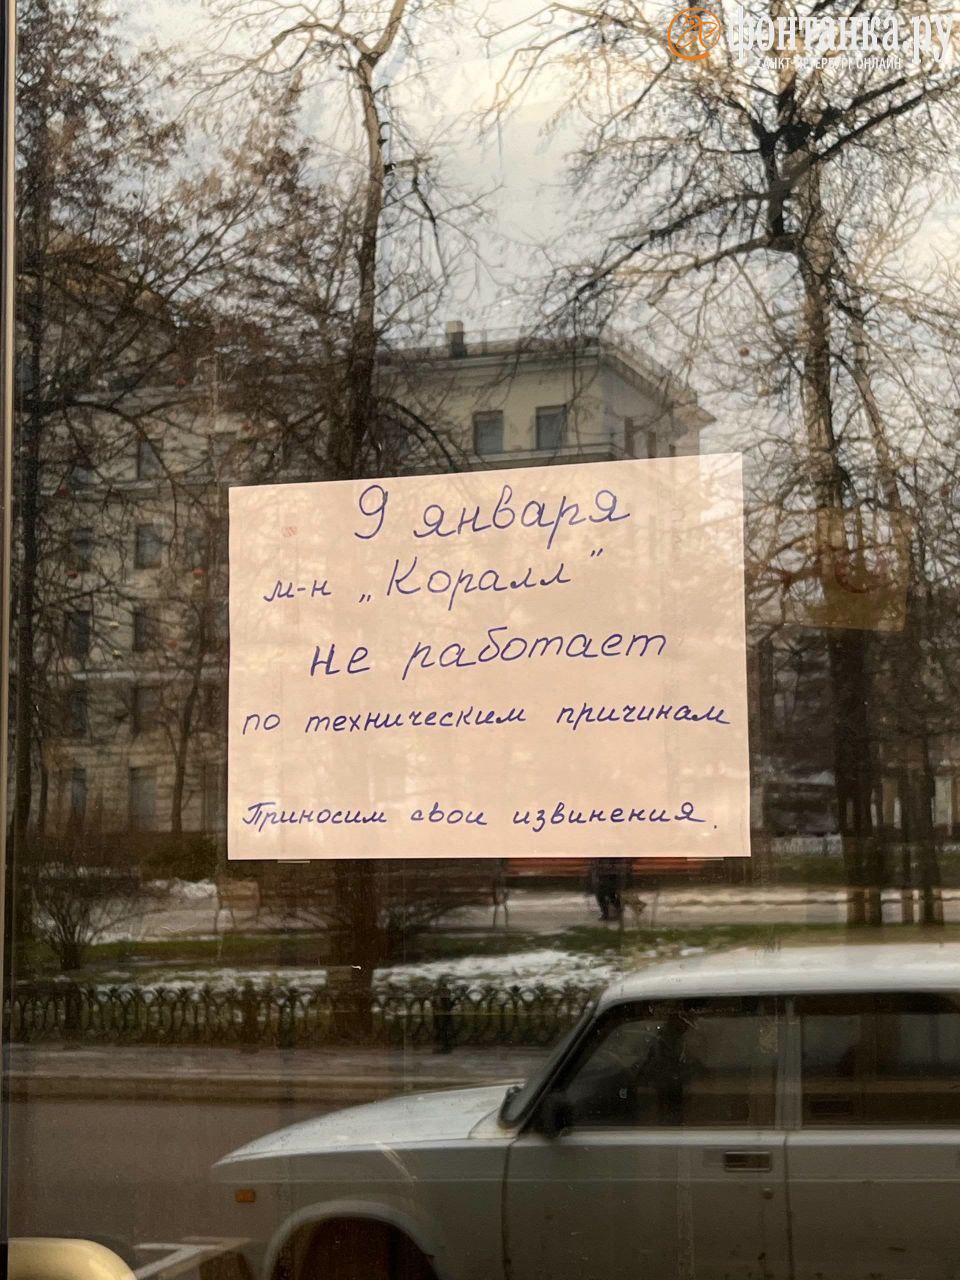 фонтанка.ру
САНКТ-ПЕТЕРБУРГ ОНЛАЙН
9 января
м-н „Коралл"
не работает
по техническим причинам
Приносим свои извинения.